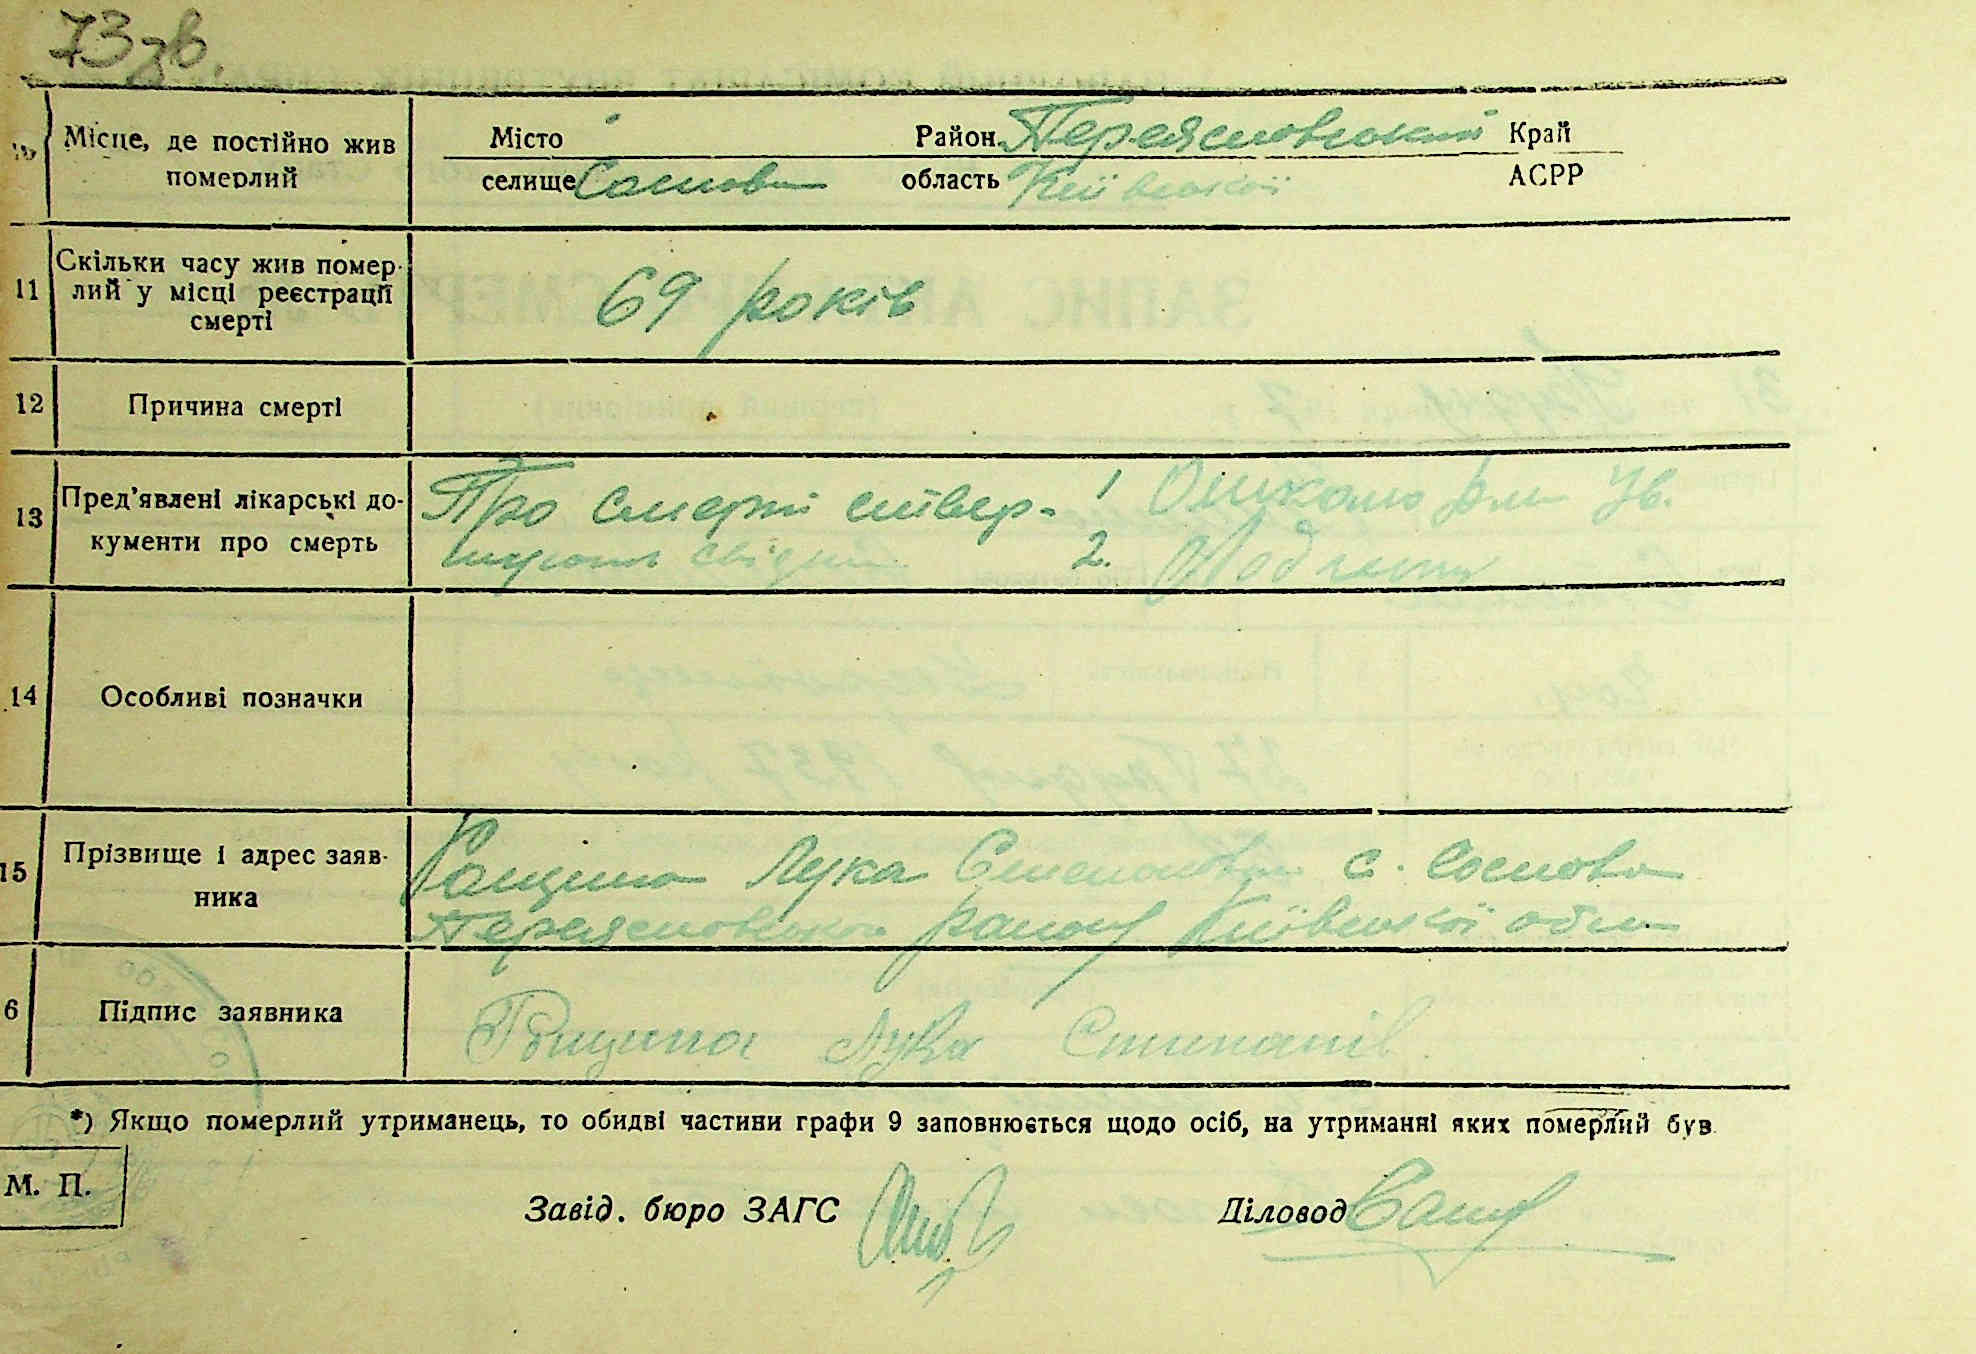 73зв.
Місце, де постійно жив
померлий
Місто Район Переяславський Край
селище Соснова область Київської АСРР
11 Скільки часу жив помер-
лий у місці реєстрації
смерті
69 років
12 Причина смерті
13 Пред'явлені лікарські до-
кументи про смерть
Про смерть ствер- 1
свідки 2.
14 Особливі позначки
15 Прізвище і адрес заяв-
ника
Лука Степанович с. Соснова
Переяславського району Київської обл
6 Підпис заявника
Лука
*) Якщо померлий утриманець, то обидві частини графи 9 заповнюється щодо осіб, на утриманні яких померлий був.
М. П.
Завід. бюро ЗАГС Діловод